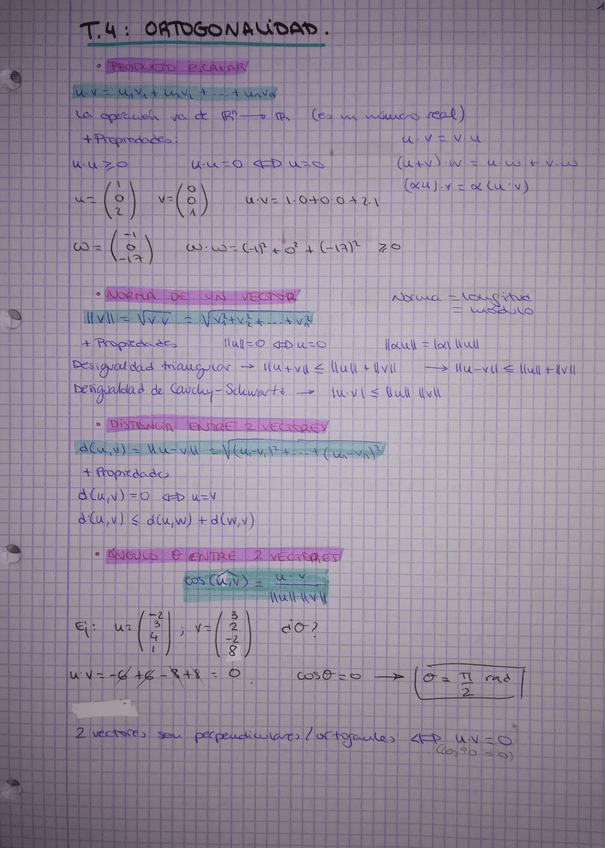 1
T.4: ORTOGONALIDAD.
• PRODUCTO ESCALAR
u·v = u₁v₁ + u₂v₂ + ... + uₙvₙ
La operación va de ℝⁿ → ℝ (es un número real)
+ Propiedades: u·v = v·u
u·u ≥ 0 u·u = 0 ⟺ u = 0 (u+v)·w = u·w + v·w
(αu)·v = α(u·v)
u = (1 0 2) v = (0 0 1) u·v = 1·0 + 0·0 + 2·1
w = (-1 0 -17) w·w = (-1)² + 0² + (-17)² ≥ 0
• NORMA DE UN VECTOR Norma = longitud
= módulo
||v|| = √v·v = √v₁² + v₂² + ... + vₙ²
+ Propiedades ||u|| = 0 ⟺ u = 0 ||αu|| = |α| ||u||
Desigualdad triangular → ||u+v|| ≤ ||u|| + ||v|| → ||u-v|| ≤ ||u|| + ||v||
Desigualdad de Cauchy-Schwartz → |u·v| ≤ ||u|| ||v||
• DISTANCIA ENTRE 2 VECTORES
d(u,v) = ||u-v|| = √(u₁-v₁)² + ... + (uₙ-vₙ)²
+ Propiedades
d(u,v) = 0 ⟺ u = v
d(u,v) ≤ d(u,w) + d(w,v)
• ÁNGULO θ ENTRE 2 VECTORES
cos(u,v) = u·v / ||u||·||v||
Ej: u = (-2 3 4 1) ; v = (3 2 -2 8) ¿θ?
u·v = -6 + 6 - 8 + 8 = 0. cosθ = 0 → θ = π/2 rad
2 vectores son perpendiculares/ortogonales ⟺ u·v = 0